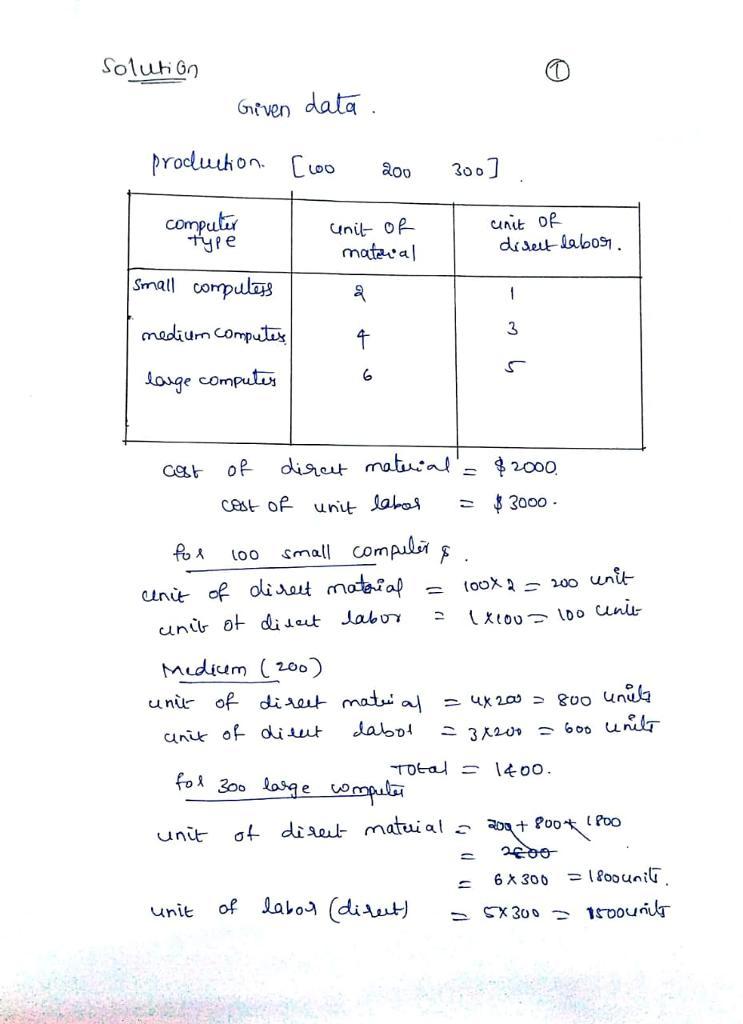 Solution ①
Given data.
production. [100 200 300].
computer type unit of material unit of direct labor.
Small computers 2 1
medium computer 4 3
large computer 6 5
cost of direct material = $2000.
cost of unit labor = $3000.
for 100 small computers.
unit of direct material = 100×2 = 200 unit
unit of direct labor = 1×100 = 100 unit
Medium (200)
unit of direct material = 4×200 = 800 units
unit of direct labor = 3×200 = 600 units
Total = 1400.
for 300 large computer
unit of direct material = 200+800+1800
= 2800
= 6×300 = 1800 unit.
unit of labor (direct) = 5×300 = 1500 units